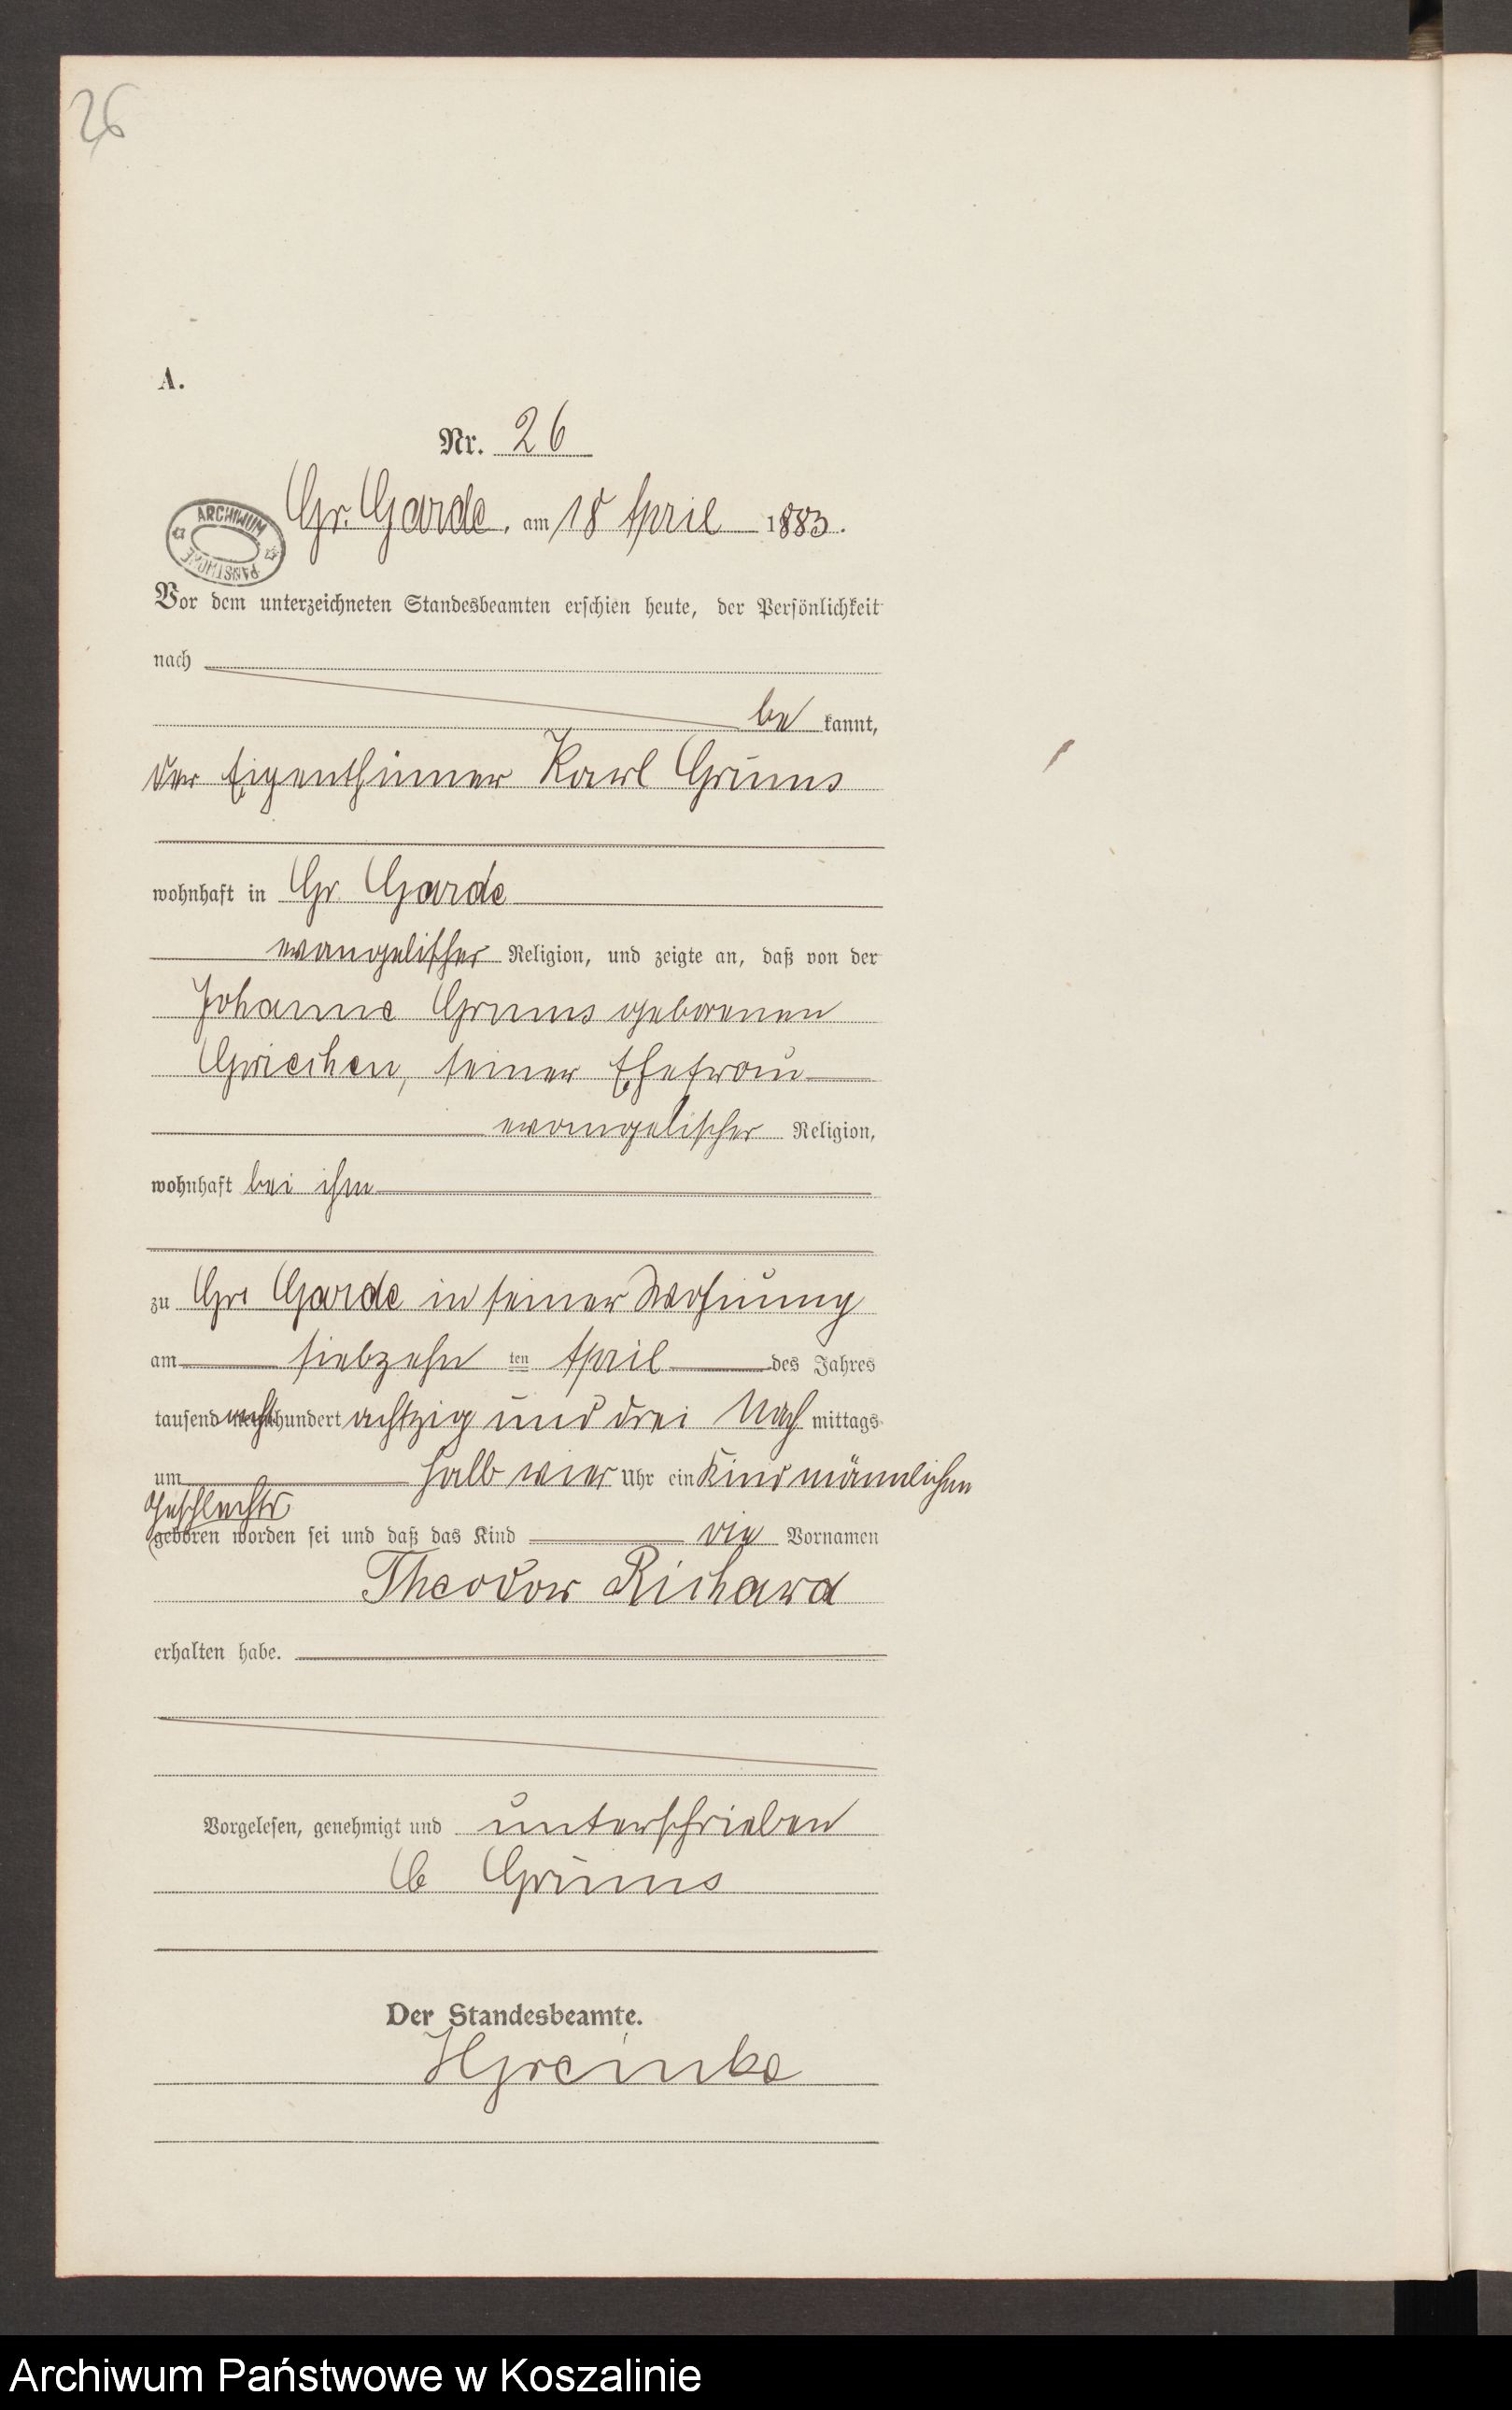 26
A.
Nr. 26
ARCHIWUM PAŃSTWOWE
Gr. Garde, am 18 April 1883.
Vor dem unterzeichneten Standesbeamten erschien heute, der Persönlichkeit
nach
be kannt,
der Eigenthümer Karl
wohnhaft in Gr. Garde
evangelischer Religion, und zeigte an, daß von der
Johanne geborenen
Griechen, seiner Ehefrau
evangelischer Religion,
wohnhaft bei ihm
zu Gr. Garde in seiner Wohnung
am siebzehn ten April des Jahres
tausend acht hundert achtzig und drei Nach mittags
um halb vier Uhr ein Kind männlichen
Geschlechts
geboren worden sei und daß das Kind die Vornamen
Theodor Richard
erhalten habe.
Vorgelesen, genehmigt und unterschrieben
Der Standesbeamte.
Archiwum Państwowe w Koszalinie